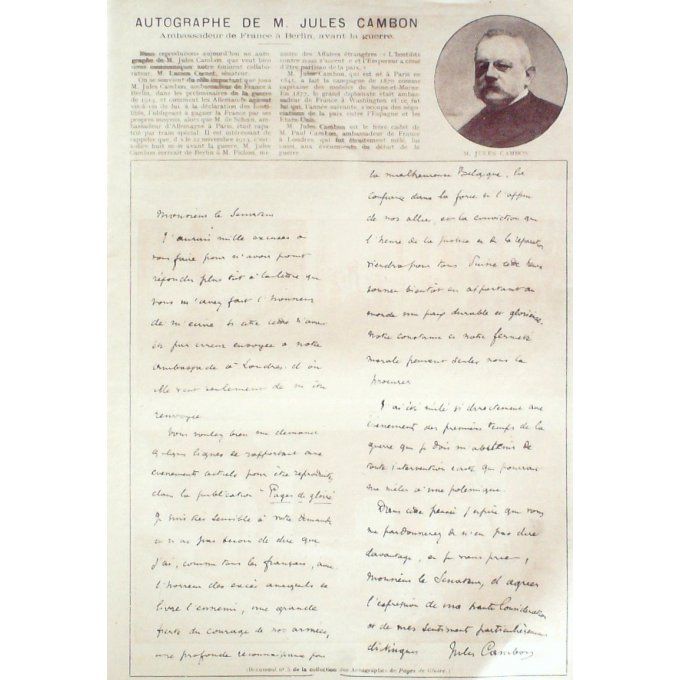 AUTOGRAPHE DE M. JULES CAMBON
Ambassadeur de France à Berlin, avant la guerre.
Nous reproduisons aujourd'hui un auto-
graphe de M. Jules Cambon, que veut bien
nous communiquer notre éminent collabo-
rateur, M. Lucien Cornet, sénateur.
On se souvient du rôle important que joua
M. Jules Cambon, ambassadeur de France à
Berlin, dans les préliminaires de la guerre
de 1914, et comment les Allemands
vis-à-vis de lui à la déclaration des hosti-
lités, l'obligeant à gagner la France par ses
propres moyens, alors que M. de Schœn, am-
bassadeur d'Allemagne à Paris, était rapa-
trié par train spécial. Il est intéressant de
rappeler que, dès le 22 novembre 1913, c'est-
à-dire huit mois avant la guerre, M. Jules
Cambon écrivait de Berlin à M. Pichon, mi-
nistre des Affaires étrangères : « L'hostilité
contre nous s'accent e et l'Empereur a cessé
d'être partisan de la paix. »
M. Jules Cambon, qui est né à Paris en
1845, a fait la campagne de 1870 comme
capitaine des mobiles de Seine-et-Marne.
En 1897, le grand diplomate était ambas-
sadeur de France à Washington et ce fut
lui qui, l'année suivante, s'occupa des négo-
ciations de la paix entre l'Espagne et les
États-Unis.
M. Jules Cambon est le frère cadet de
M. Paul Cambon, ambassadeur de France
à Londres, qui fut étroitement mêlé, lui
aussi, aux événements du début de la
guerre.
M. JULES CAMBON
Monsieur le Sénateur
J'aurais mille excuses à
vous faire pour n'avoir point
répondu plus tôt à la lettre que
vous m'avez fait l'honneur
de m'écrire si cette lettre n'avait
été par erreur envoyée à notre
ambassade à Londres, d'où
elle vient seulement de m'être
renvoyée
Vous voulez bien me demander
quelques lignes se rapportant aux
événements actuels pour être reproduites
dans la publication "Pages de gloire"
Je suis très sensible à votre demande
et n'ai pas besoin de dire que
j'ai, comme tous les français, avec
l'horreur des excès auxquels se
livre l'ennemi, une grande
fierté du courage de nos armées,
une profonde reconnaissance pour
la malheureuse Belgique, la
confiance dans la force et l'appui
de nos alliés, et la conviction que
l'heure de la justice et de la réparation
viendra pour tous. Puisse cette heure
sonner bientôt en apportant au
monde une paix durable et glorieuse.
Notre constance et notre fermeté
morale peuvent seules nous la
procurer
J'ai été mêlé si directement aux
événements des premiers temps de la
guerre que je dois m'abstenir de
toute intervention écrite qui pourrait
me mêler à une polémique.
Dans cette pensée j'espère que vous
me pardonnerez de n'en pas dire
davantage, et je vous prie,
Monsieur le Sénateur, d'agréer
l'expression de ma haute considération
et de mes sentiments particulièrement
distingués Jules Cambon
(Document n° 5 de la collection des Autographes de Pages de Gloire.)